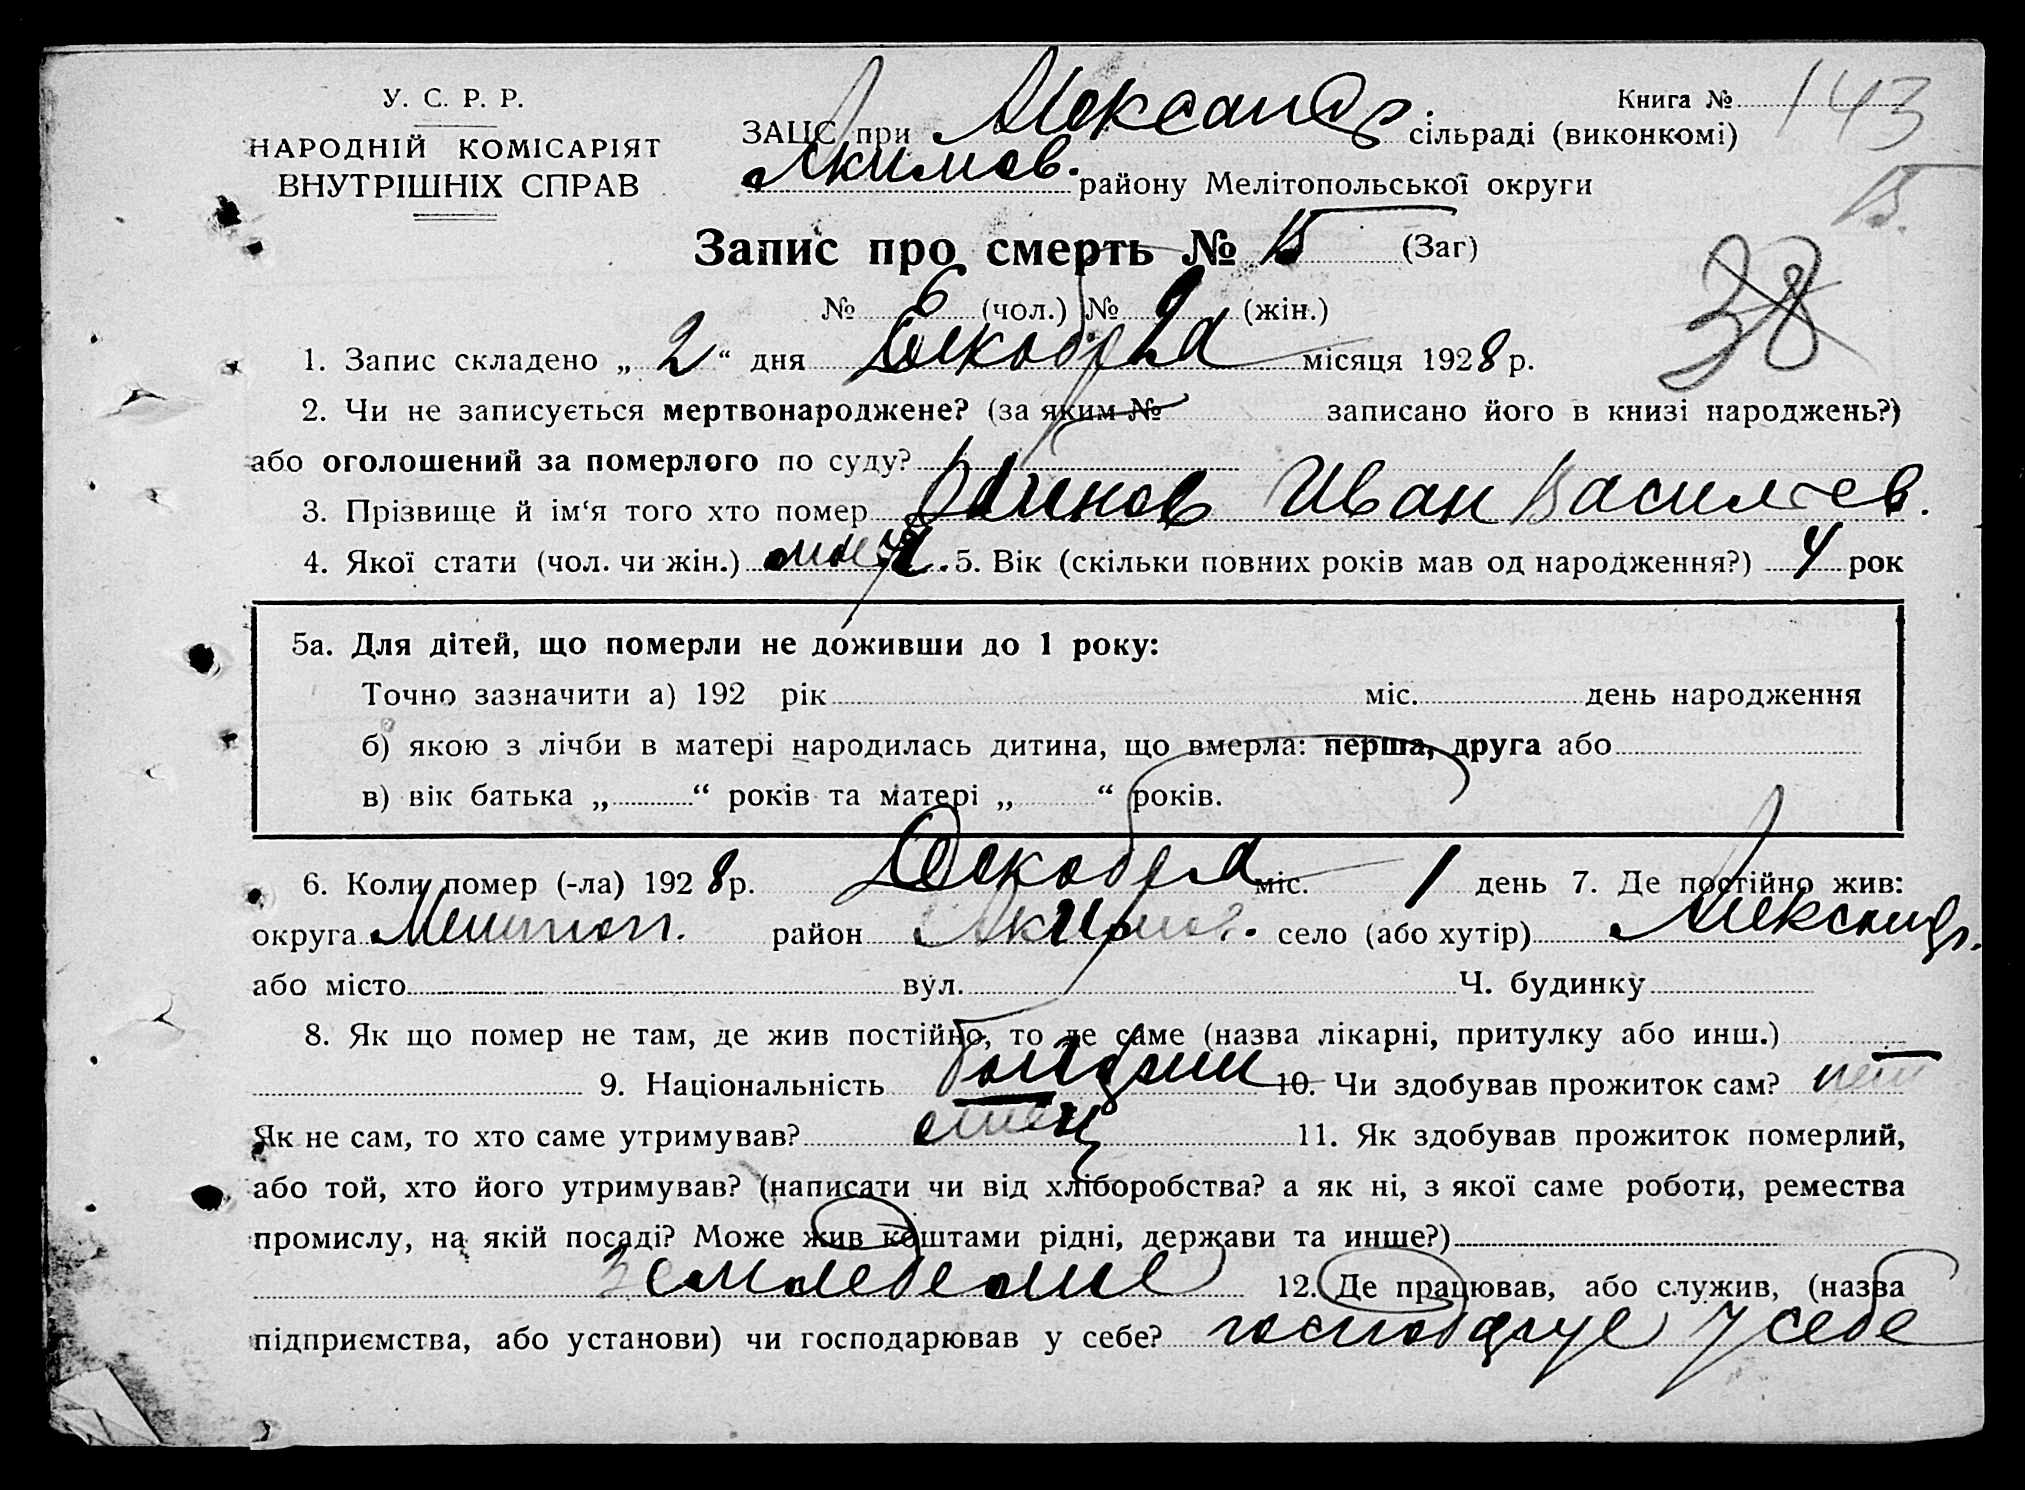 У. С. Р. Р.
НАРОДНІЙ КОМІСАРІЯТ
ВНУТРІШНІХ СПРАВ
Книга № 143
ЗАЦС при Александр. сільраді (виконкомі)
Акимов. району Мелітопольської округи
15
Запис про смерть № 15 (Заг)
38
№ 6 (чол.) № (жін.)
1. Запис складено „ 2 “ дня Декабря місяця 1928 р.
2. Чи не записується мертвонароджене? (за яким № записано його в книзі народжень?)
або оголошений за померлого по суду?
3. Прізвище й ім‘я того хто помер Иван Васильев.
4. Якої стати (чол. чи жін.) муж. 5. Вік (скільки повних років мав од народження?) 4 рок
5а. Для дітей, що померли не доживши до 1 року:
Точно зазначити а) 192 рік міс. день народження
б) якою з лічби в матері народилась дитина, що вмерла: перша, друга або
в) вік батька „ “ років та матері „ “ років.
6. Коли помер (-ла) 1928 р. Декабря міс. 1 день 7. Де постійно жив:
округа Мелитоп. район Акимов. село (або хутір) Александр.
або місто вул. Ч. будинку
8. Як що помер не там, де жив постійно, то де саме (назва лікарні, притулку або инш.)
9. Національність болгарин 10. Чи здобував прожиток сам? нет
Як не сам, то хто саме утримував? отец 11. Як здобував прожиток померлий,
або той, хто його утримував? (написати чи від хліборобства? а як ні, з якої саме роботи, ремества
промислу, на якій посаді? Може жив коштами рідні, держави та инше?)
земледелие 12. Де працював, або служив, (назва
підприємства, або установи) чи господарював у себе? господарує у себе